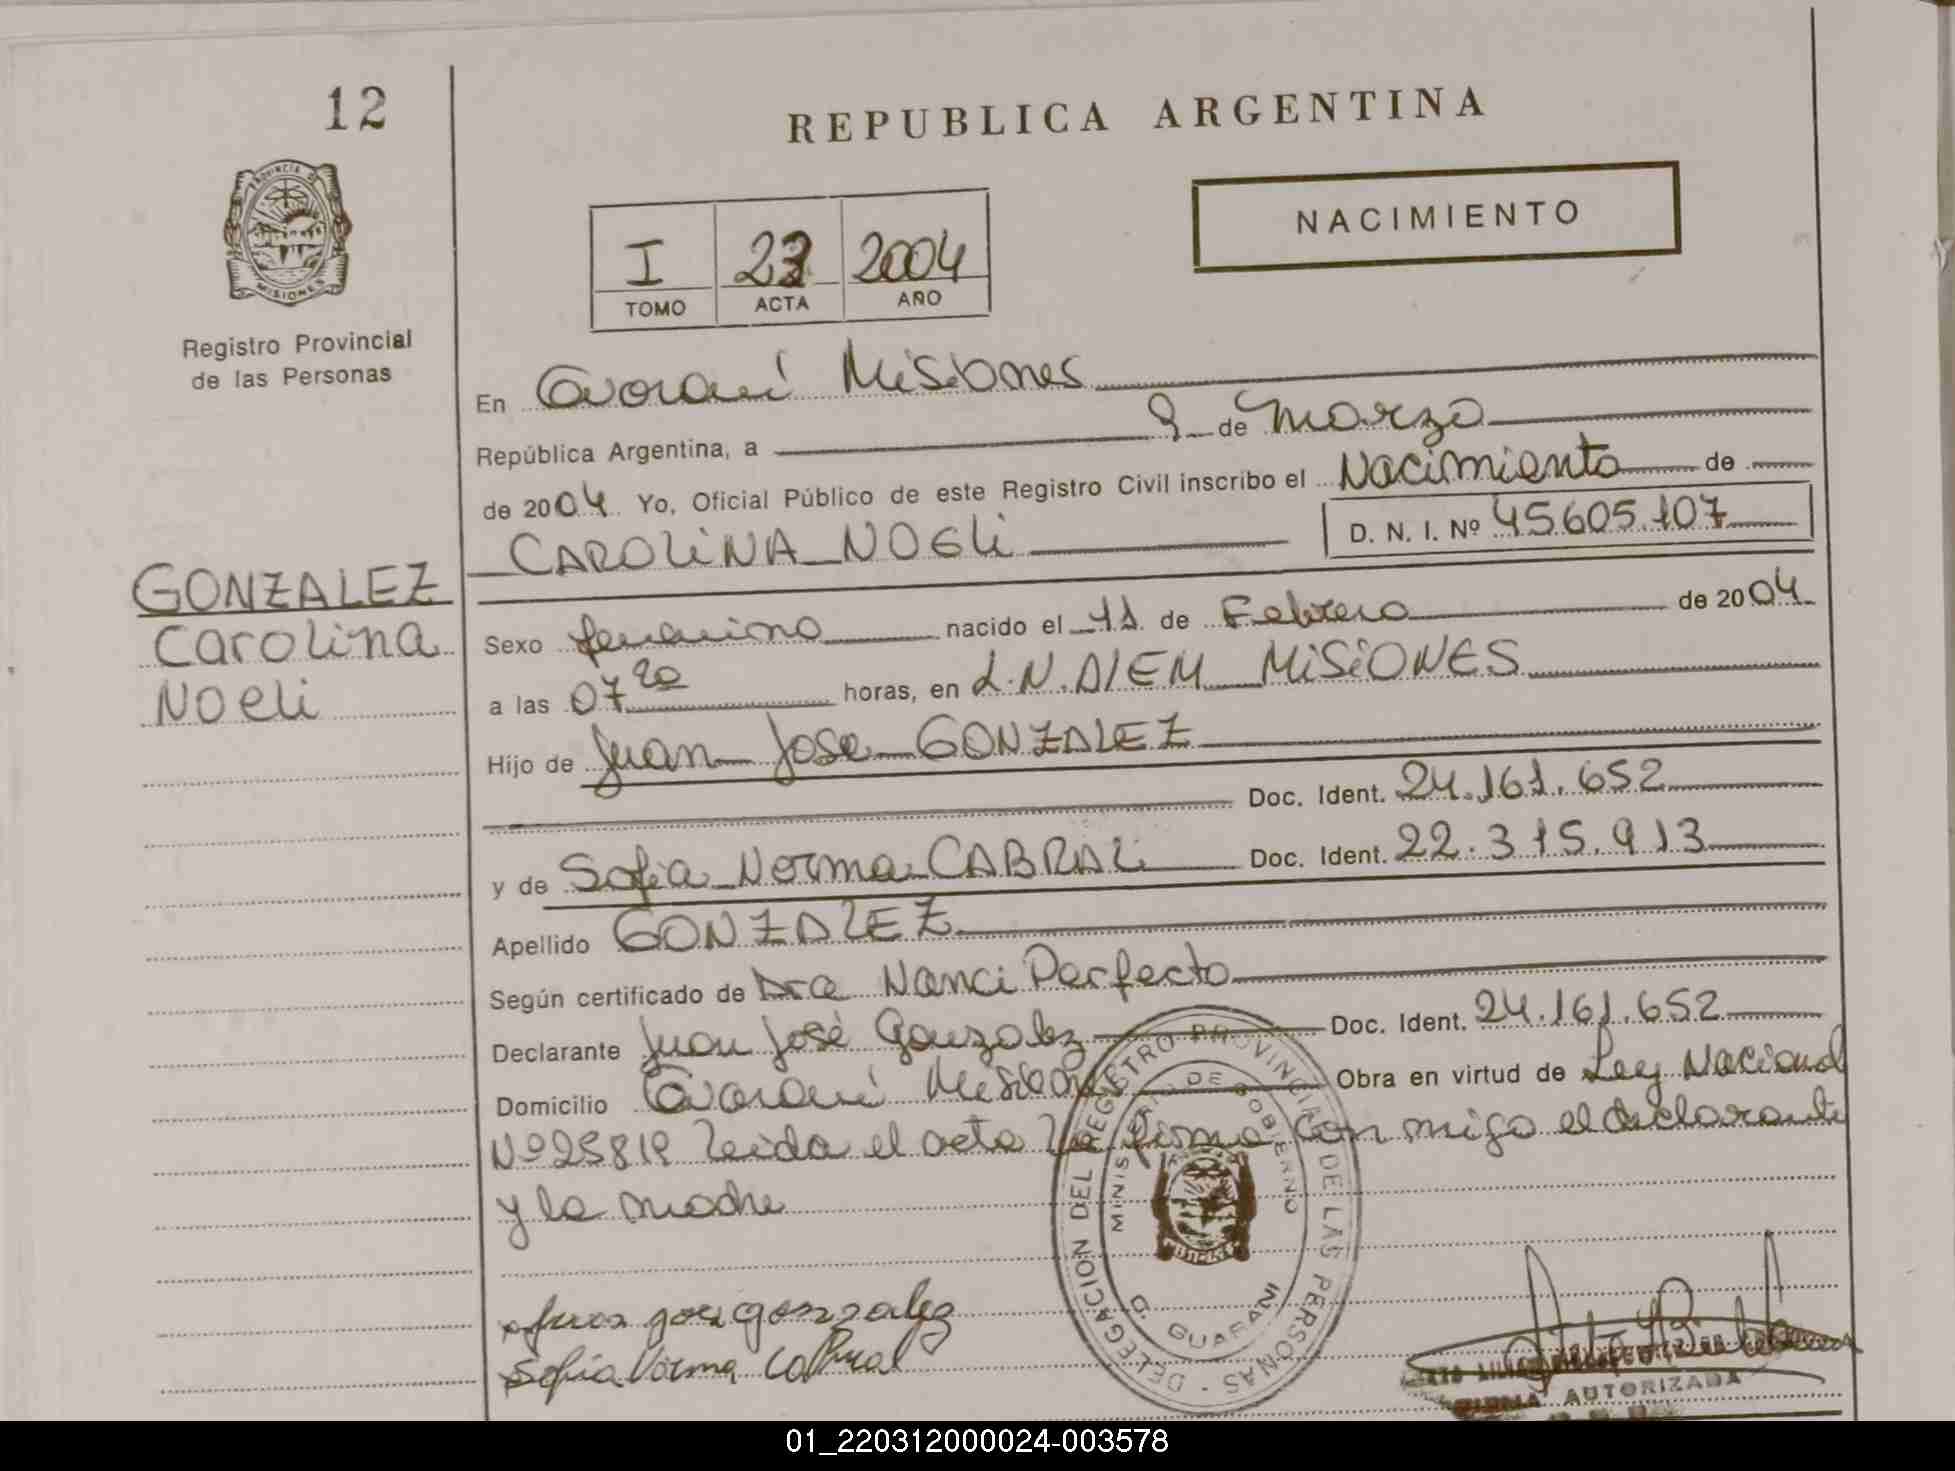 12
REPUBLICA ARGENTINA
PROVINCIA D
MISIONES
NACIMIENTO
I 2004
TOMO ACTA AÑO
Registro Provincial
de las Personas
En Guaraní Misiones
República Argentina, a 9 de Marzo
de 2004 Yo, Oficial Público de este Registro Civil inscribo el Nacimiento de
CAROLINA NOELI D. N. I. Nº 45605.107
GONZALEZ
Carolina
Noeli
Sexo femenino nacido el 11 de Febrero de 2004
a las 07 20 horas, en L.N.ALEM MISIONES
Hijo de Juan Jose GONZALEZ
Doc. Ident. 24.161.652
y de Sofia Norma CABRAL Doc. Ident. 22.315.913
Apellido GONZALEZ
Según certificado de Dra Nanci Perfecto
Declarante Juan José Gonzalez Doc. Ident. 24.161.652
Domicilio Guaraní Misiones Obra en virtud de Ley Nacional
Nº25819 leida el acta la firma con migo el declarante
y la madre
DELEGACION DEL REGISTRO PROVINCIAL DE LAS PERSONAS
MINISTERIO DE GOBIERNO
D. GUARANI
MISIONES
Juan jose gonzalez
Sofia Norma Cabral
FIRMA AUTORIZADA
01_220312000024-003578